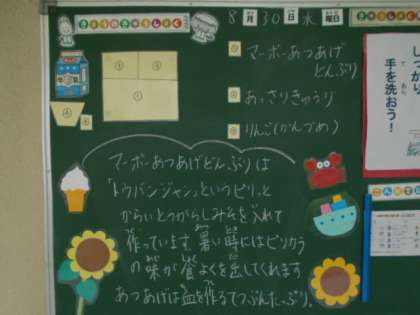 きょうのきゅうしょく
8月30日水曜日
マーボーあつあげ
どんぶり
あっさりきゅうり
りんご(かんづめ)
しっかり
手を洗おう!
マーボーあつあげどんぶりは
「トウバンジャン」というピリッと
からいとうがらしみそを入れて
作っています。暑い時にはピリカラ
の味が食よくを出してくれます
あつあげは血を作るてつぶんたっぷり。